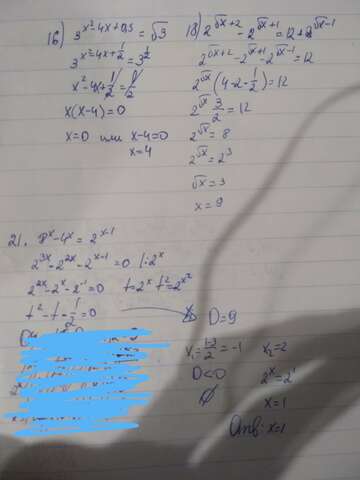 16) 3^(x²-4x+0,5) = √3
3^(x²-4x+1/2) = 3^(1/2)
x²-4x+1/2 = 1/2
x(x-4)=0
x=0 или x-4=0
x=4
18) 2^(√x+2) - 2^(√x+1) = 12 + 2^(√x-1)
2^(√x+2) - 2^(√x+1) - 2^(√x-1) = 12
2^√x (4-2-1/2) = 12
2^√x · 3/2 = 12
2^√x = 8
2^√x = 2³
√x = 3
x = 9
21. 8^x - 4^x = 2^(x-1)
2^(3x) - 2^(2x) - 2^(x-1) = 0 |: 2^x
2^(2x) - 2^x - 2^(-1) = 0 t=2^x t²=2^(x²)
t² - t - 1/2 = 0
D=9
x₁ = (1-3)/2 = -1 x₂=2
D<0 2^x=2^1
∅ x=1
Отв: x=1